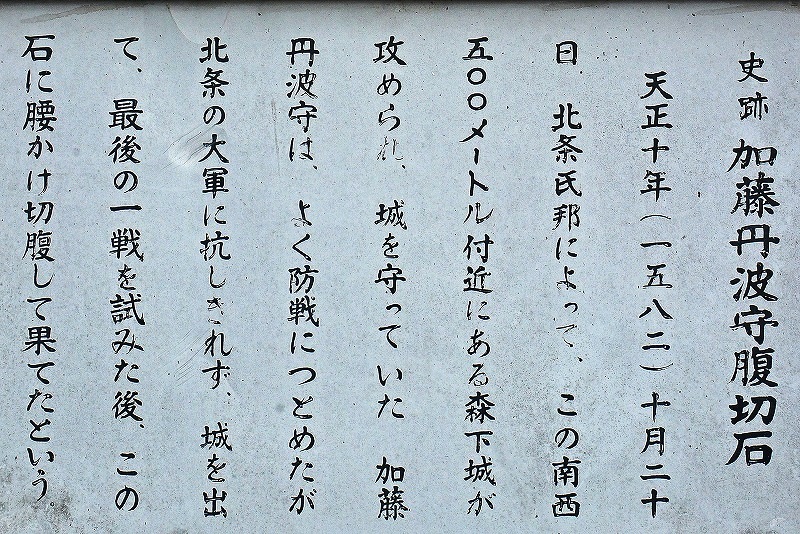 史跡 加藤丹波守腹切石
天正十年(一五八二)十月二十
日 北条氏邦によって、この南西
五〇〇メートル付近にある森下城が
攻められ、城を守っていた 加藤
丹波守は、よく防戦につとめたが
北条の大軍に抗しきれず、城を出
て、最後の一戦を試みた後、この
石に腰かけ切腹して果てたという。